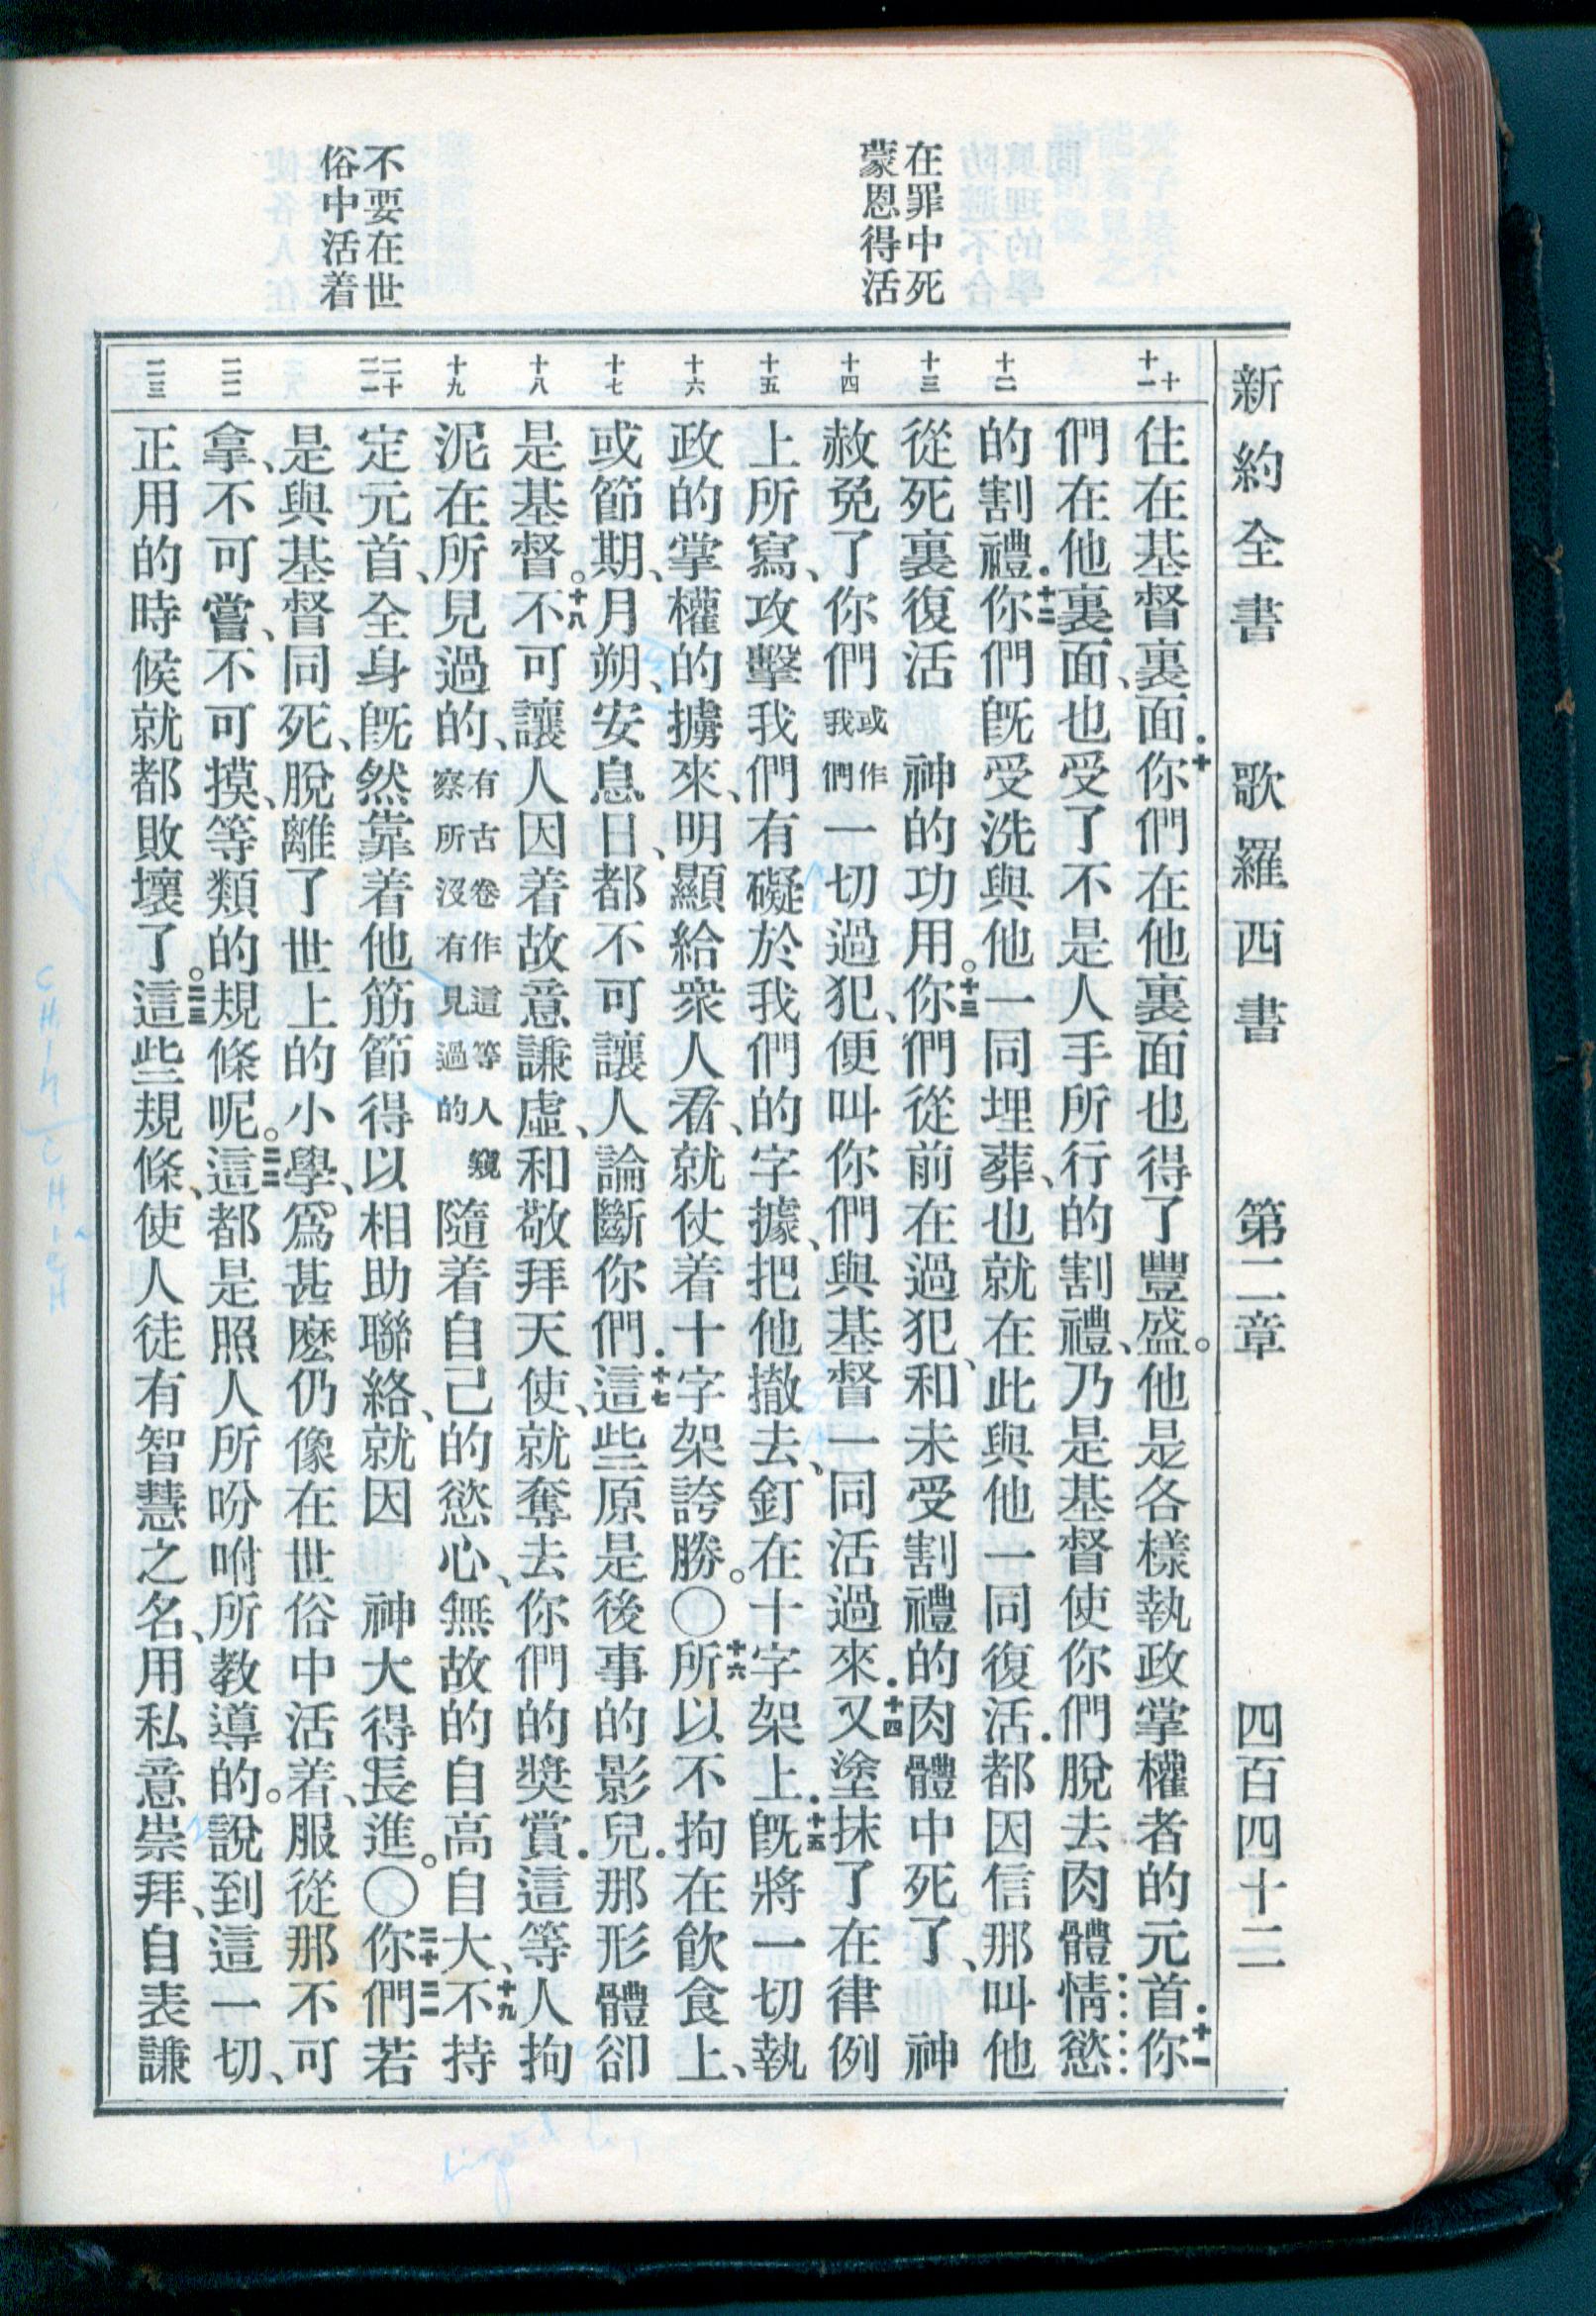 新約全書　歌羅西書　第二章　四百四十二
在罪中死
蒙恩得活
不要在世
俗中活着
十
十一
十二
十三
十四
十五
十六
十七
十八
十九
二十
二一
二二
二三
住在基督裏面．十你們在他裏面也得了豐盛。他是各樣執政掌權者的元首．十一你
們在他裏面、也受了不是人手所行的割禮、乃是基督使你們脫去肉體情慾
的割禮．十二你們旣受洗與他一同埋葬、也就在此與他一同復活．都因信那叫他
從死裏復活　神的功用。十三你們從前在過犯、和未受割禮的肉體中死了、　神
赦免了你們或作我們一切過犯、便叫你們與基督一同活過來．十四又塗抹了在律例
上所寫、攻擊我們有礙於我們的字據、把他撤去、釘在十字架上．十五旣將一切執
政的掌權的擄來、明顯給衆人看、就仗着十字架誇勝。〇十六所以不拘在飲食上、
或節期、月朔、安息日、都不可讓人論斷你們．十七這些原是後事的影兒．那形體卻
是基督。十八不可讓人因着故意謙虛、和敬拜天使、就奪去你們的奬賞．這等人拘
泥在所見過的、有古卷作這等人窺察所沒有見過的隨着自己的慾心、無故的自高自大、十九不持
定元首、全身旣然靠着他筋節得以相助聯絡、就因　神大得長進。〇二十你們若
是與基督同死、脫離了世上的小學、爲甚麽仍像在世俗中活着、服從那不可
拿、不可嘗、不可摸、等類的規條呢。二二這都是照人所吩咐所教導的。說到這一切、
正用的時候就都敗壞了。二三這些規條、使人徒有智慧之名、用私意崇拜、自表謙
CHIN CHIEH